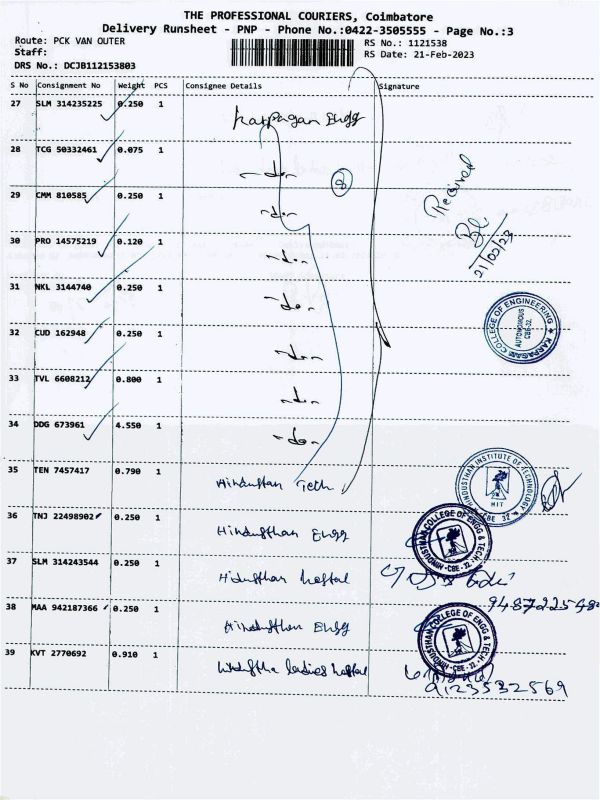 THE PROFESSIONAL COURIERS, Coimbatore
Delivery Runsheet - PNP - Phone No.:0422-3505555 - Page No.:3
Route: PCK VAN OUTER
RS No.: 1121538
Staff:
RS Date: 21-Feb-2023
DRS No.: DCJB112153803
S No Consignment No Weight PCS Consignee Details Signature
27 SLM 314235225 0.250 1 Karpagam Engg
28 TCG 50332461 0.075 1 -do-
8
29 CMM 810585 0.250 1 -do-
Received
30 PRO 14575219 0.120 1 -do-
21/02/23
31 NKL 3144740 0.250 1 -do-
KARPAGAM COLLEGE OF ENGINEERING
AUTONOMOUS
CBE-32.
32 CUD 162948 0.250 1 -do-
33 TVL 6608212 0.800 1 -do-
34 DDG 673961 4.550 1 -do-
35 TEN 7457417 0.790 1 Hindusthan Tech
HINDUSTHAN INSTITUTE OF TECHNOLOGY
HIT
CBE 32
36 TNJ 22498902 0.250 1 Hindusthan Engg
HINDUSTHAN COLLEGE OF ENGG & TECH
CBE-32.
37 SLM 314243544 0.250 1 Hidusthan hostal
38 MAA 942187366 0.250 1 Hindusthan Engg
HINDUSTHAN COLLEGE OF ENGG & TECH
CBE-32.
39 KVT 2770692 0.910 1 Hindustha ladies hostal
9123532569